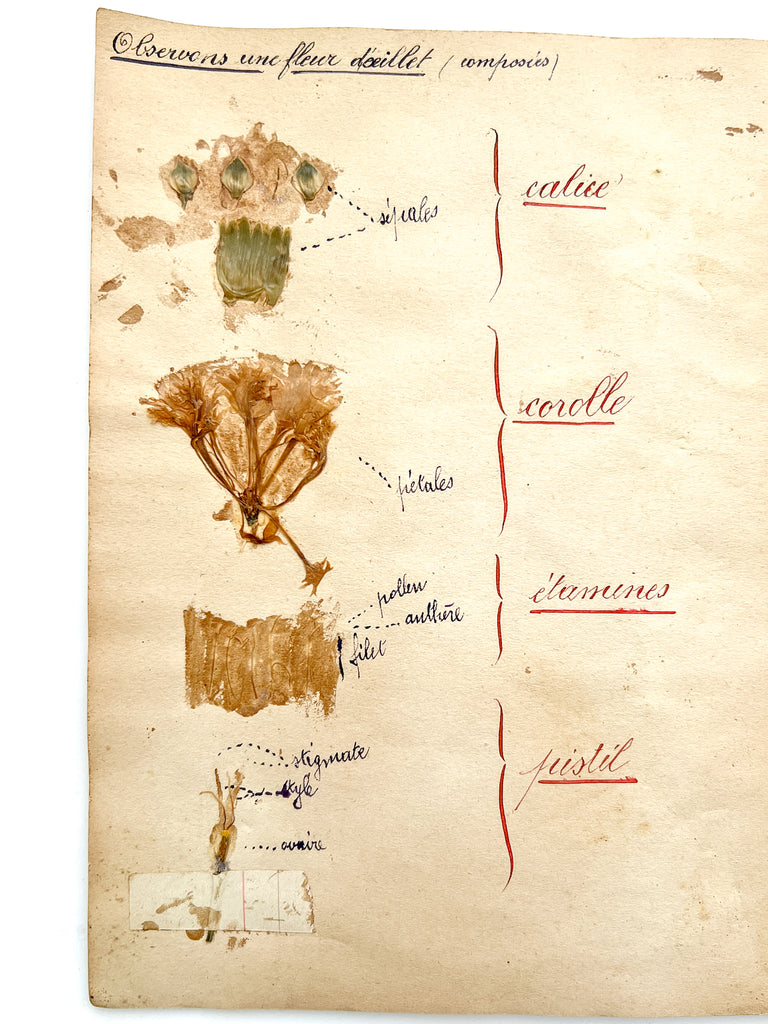 Observons une fleur d'œillet (composées)
sépales
calice
corolle
pétales
pollen
anthère
filet
étamines
stigmate
style
ovaire
pistil